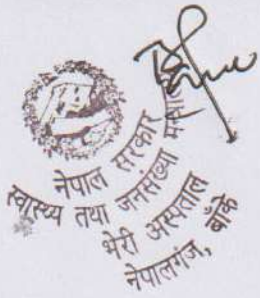 नेपाल सरकार
स्वास्थ्य तथा जनसंख्या मन्त्रालय
भेरी अस्पताल
नेपालगंज, बाँके